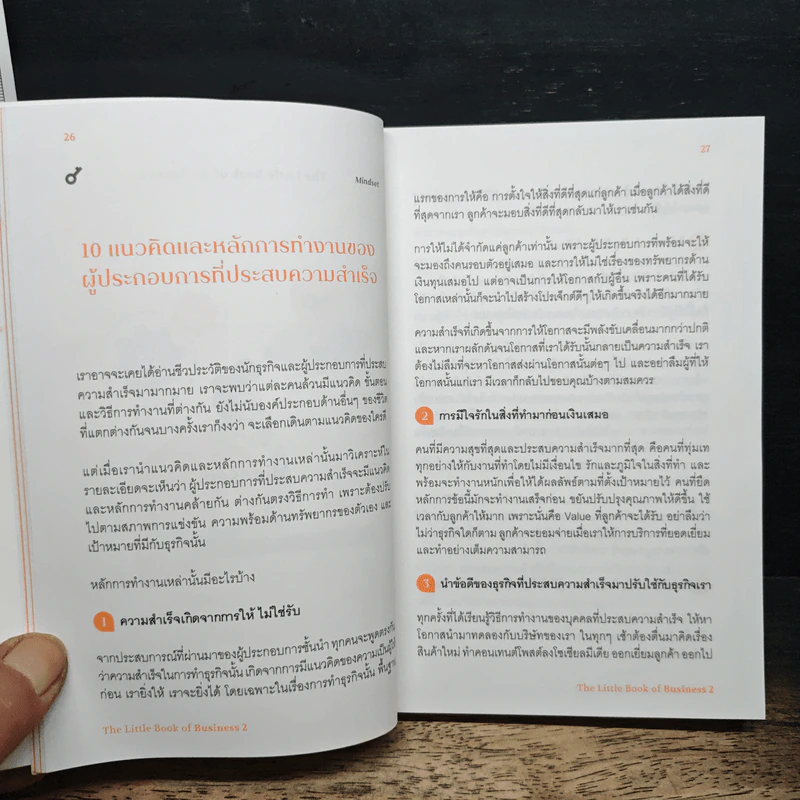 26
Mindset
10 แนวคิดและหลักการทำงานของ
ผู้ประกอบการที่ประสบความสำเร็จ
เราอาจจะเคยได้อ่านชีวประวัติของนักธุรกิจและผู้ประกอบการที่ประสบ
ความสำเร็จมามากมาย เราจะพบว่าแต่ละคนล้วนมีแนวคิด ขั้นตอน
และวิธีการทำงานที่ต่างกัน ยังไม่นับองค์ประกอบด้านอื่นๆ ของชีวิต
ที่แตกต่างกันจนบางครั้งเราก็งงว่า จะเลือกเดินตามแนวคิดของใครดี
แต่เมื่อเรานำแนวคิดและหลักการทำงานเหล่านั้นมาวิเคราะห์ใน
รายละเอียดจะเห็นว่า ผู้ประกอบการที่ประสบความสำเร็จจะมีแนวคิด
และหลักการทำงานคล้ายกัน ต่างกันตรงวิธีการทำ เพราะต้องปรับ
ไปตามสภาพการแข่งขัน ความพร้อมด้านทรัพยากรของตัวเอง และ
เป้าหมายที่มีกับธุรกิจนั้น
หลักการทำงานเหล่านั้นมีอะไรบ้าง
1 ความสำเร็จเกิดจากการให้ ไม่ใช่รับ
จากประสบการณ์ที่ผ่านมาของผู้ประกอบการชั้นนำ ทุกคนจะพูดตรงกัน
ว่าความสำเร็จในการทำธุรกิจนั้น เกิดจากการมีแนวคิดของความเป็นผู้ให้
ก่อน เรายิ่งให้ เราจะยิ่งได้ โดยเฉพาะในเรื่องการทำธุรกิจนั้น พื้นฐาน
The Little Book of Business 2
27
แรกของการให้คือ การตั้งใจให้สิ่งที่ดีที่สุดแก่ลูกค้า เมื่อลูกค้าได้สิ่งที่ดี
ที่สุดจากเรา ลูกค้าจะมอบสิ่งที่ดีที่สุดกลับมาให้เราเช่นกัน
การให้ไม่ได้จำกัดแค่ลูกค้าเท่านั้น เพราะผู้ประกอบการที่พร้อมจะให้
จะมองถึงคนรอบตัวอยู่เสมอ และการให้ไม่ใช่เรื่องของทรัพยากรด้าน
เงินทุนเสมอไป แต่อาจเป็นการให้โอกาสกับผู้อื่น เพราะคนที่ได้รับ
โอกาสเหล่านั้นก็จะนำไปสร้างโปรเจ็กต์ดีๆ ให้เกิดขึ้นจริงได้อีกมากมาย
ความสำเร็จที่เกิดขึ้นจากการให้โอกาสจะมีพลังขับเคลื่อนมากกว่าปกติ
และหากเราผลักดันจนโอกาสที่เราได้รับนั้นกลายเป็นความสำเร็จ เรา
ต้องไม่ลืมที่จะหาโอกาสส่งผ่านโอกาสนั้นต่อๆ ไป และอย่าลืมผู้ที่ให้
โอกาสนั้นแก่เรา มีเวลาก็กลับไปขอบคุณบ้างตามสมควร
2 การมีใจรักในสิ่งที่ทำมาก่อนเงินเสมอ
คนที่มีความสุขที่สุดและประสบความสำเร็จมากที่สุด คือคนที่ทุ่มเท
ทุกอย่างให้กับงานที่ทำโดยไม่มีเงื่อนไข รักและภูมิใจในสิ่งที่ทำ และ
พร้อมจะทำงานหนักเพื่อให้ได้ผลลัพธ์ตามที่ตั้งเป้าหมายไว้ คนที่ยึด
หลักการข้อนี้มักจะทำงานเสร็จก่อน ขยันปรับปรุงคุณภาพให้ดีขึ้น ใช้
เวลากับลูกค้าให้มาก เพราะนั่นคือ Value ที่ลูกค้าจะได้รับ อย่าลืมว่า
ไม่ว่าธุรกิจใดก็ตาม ลูกค้าจะยอมจ่ายเมื่อเราให้การบริการที่ยอดเยี่ยม
และทำอย่างเต็มความสามารถ
3 นำข้อดีของธุรกิจที่ประสบความสำเร็จมาปรับใช้กับธุรกิจเรา
ทุกครั้งที่ได้เรียนรู้วิธีการทำงานของบุคคลที่ประสบความสำเร็จ ให้หา
โอกาสนำมาทดลองกับบริษัทของเรา ในทุกๆ เช้าต้องตื่นมาคิดเรื่อง
สินค้าใหม่ ทำคอนเทนต์โพสต์ลงโซเชียลมีเดีย ออกเยี่ยมลูกค้า ออกไป
The Little Book of Business 2